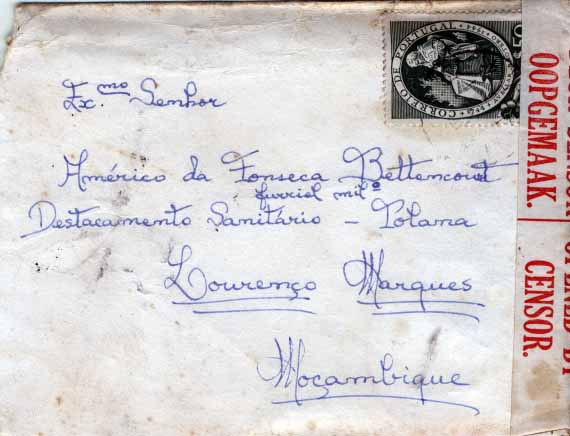 Ex.mo Senhor
Américo da Fonseca Bettencourt
furriel milº
Destacamento Sanitário - Polana
Lourenço Marques
Moçambique
CORREIO DE PORTUGAL
OOPGEMAAK.
CENSOR.
SENSOR
OPENED BY